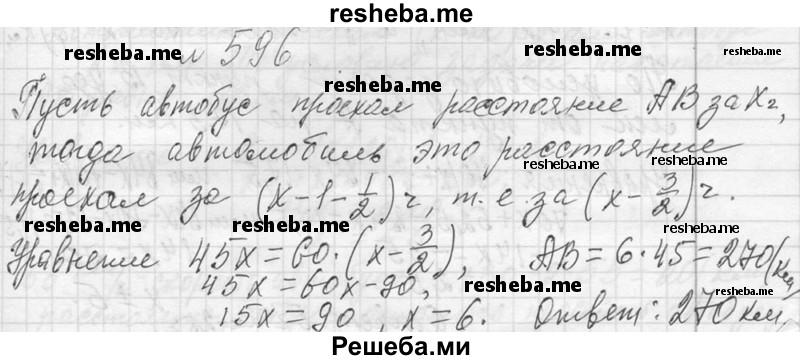 resheba.me
resheba.me resheba.me resheba.me
№ 596
Пусть автобус проехал расстояние AB за x ч,
тогда автомобиль это расстояние
resheba.me resheba.me
проехал за (x-1-1/2) ч, т.е. за (x-3/2) ч.
resheba.me resheba.me resheba.me
Уравнение 45x=60·(x-3/2), AB=6·45=270(км)
45x=60x-90,
resheba.me resheba.me
15x=90, x=6. Ответ: 270 км.
Решеба.ми